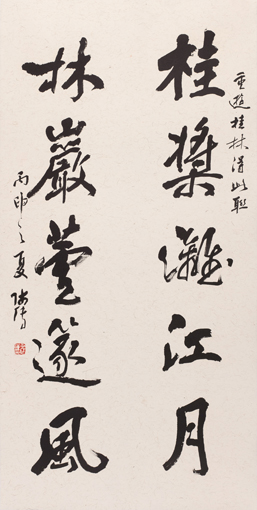 重遊桂林得此聯
桂槳灕江月
林巖蘆篴風
丙申之夏